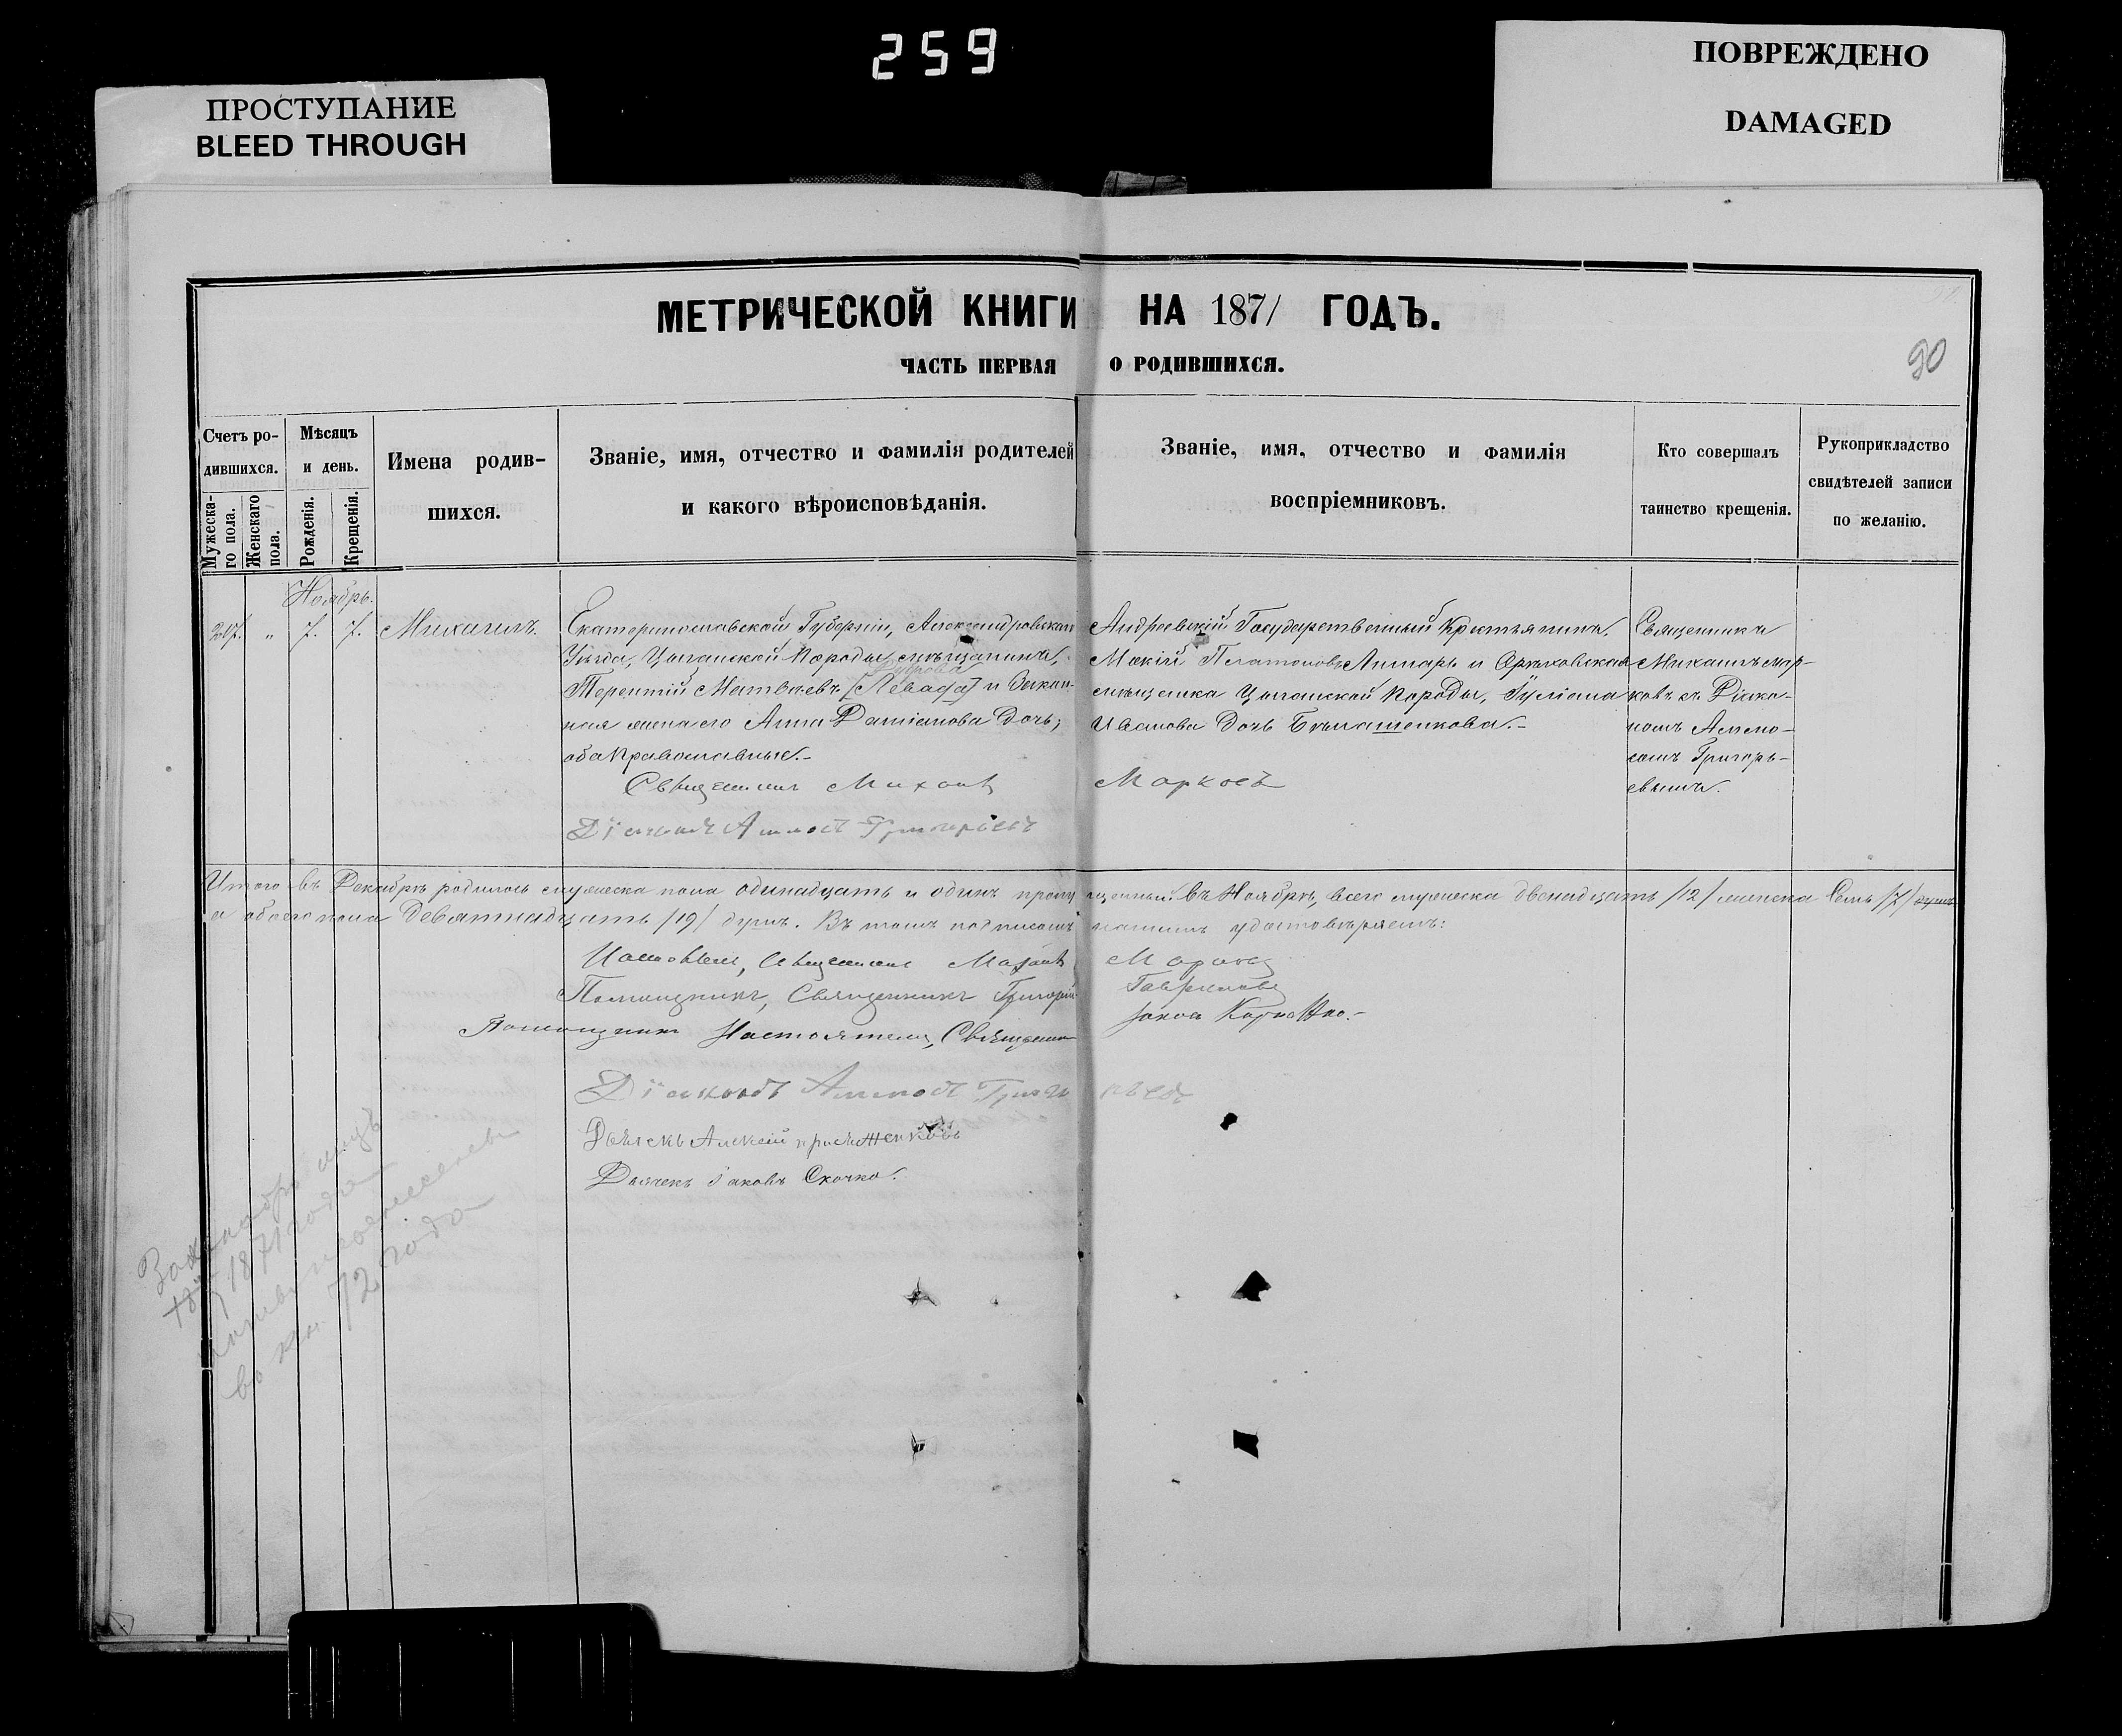 259
ПРОСТУПАНИЕ
BLEED THROUGH
ПОВРЕЖДЕНО
DAMAGED
МЕТРИЧЕСКОЙ КНИГИ НА 1871 ГОДЪ.
ЧАСТЬ ПЕРВАЯ О РОДИВШИХСЯ.
90
Счетъ ро-
дившихся.
Мужеска-
го пола.
Женскаго
пола.
Мѣсяцъ
и день.
Рожденія.
Крещенія.
Имена родив-
шихся.
Званіе, имя, отчество и фамилія родителей
и какого вѣроисповѣданія.
Званіе, имя, отчество и фамилія
воспріемниковъ.
Кто совершалъ
таинство крещенія.
Рукоприкладство
свидѣтелей записи
по желанію.
Ноябрь.
207. „ 7. 7. Михаилъ.
Екатеринославской Губерніи, Александровскаго
Уѣзда, Цыганской Породы мѣщанинъ,
Терентій Матвѣевъ [Левада] и Закон-
ная жена его Анна Даміанова дочь;
оба Православные.
Священникъ Михаилъ Марковъ
Діаконъ Аммосъ Григорьевъ
Андреевскій Государственный Крестьянинъ
Мокій Платоновъ и Орѣховская
мѣщанка Цыганской Породы, Іуліана
Иванова дочь
Священникъ
Михаилъ Мар-
ковъ съ Діако-
номъ Аммо-
сомъ Григорь-
евымъ.
Итого въ Декабрѣ родилось мужеска пола одинадцать и одинъ пропущенный въ Ноябрѣ, всего мужеска двенадцать /12/ женска Семь /7/ душъ
а обоего пола девятнадцать /19/ душъ. Въ томъ подписомъ нашимъ удостовѣряемъ:
Священникъ Михаилъ Марковъ
Помощникъ, Священникъ Григорій Гавриловъ
Помощникъ Настоятеля, Священникъ
Діаконъ Аммосъ Григорьевъ
Дьячекъ Алексій
Дьячекъ Іаковъ Скочко.
1871 года
72 года